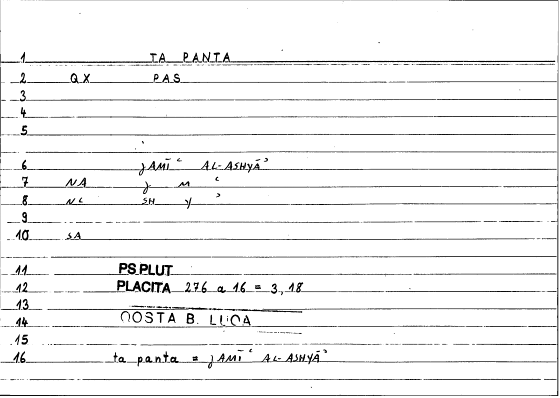 1 TA PANTA
2 QX PAS
3
4
5
6 ȷAMĪʿ AL-ASHYĀʾ
7 NA ȷ M ʿ
8 NC SH Y ʾ
9
10 SA
11 PS.PLUT
12 PLACITA 276 a 16 = 3,18
13
14 QOSTA B. LUCA
15
16 ta panta = ȷAMĪʿ AL-ASHYĀʾ